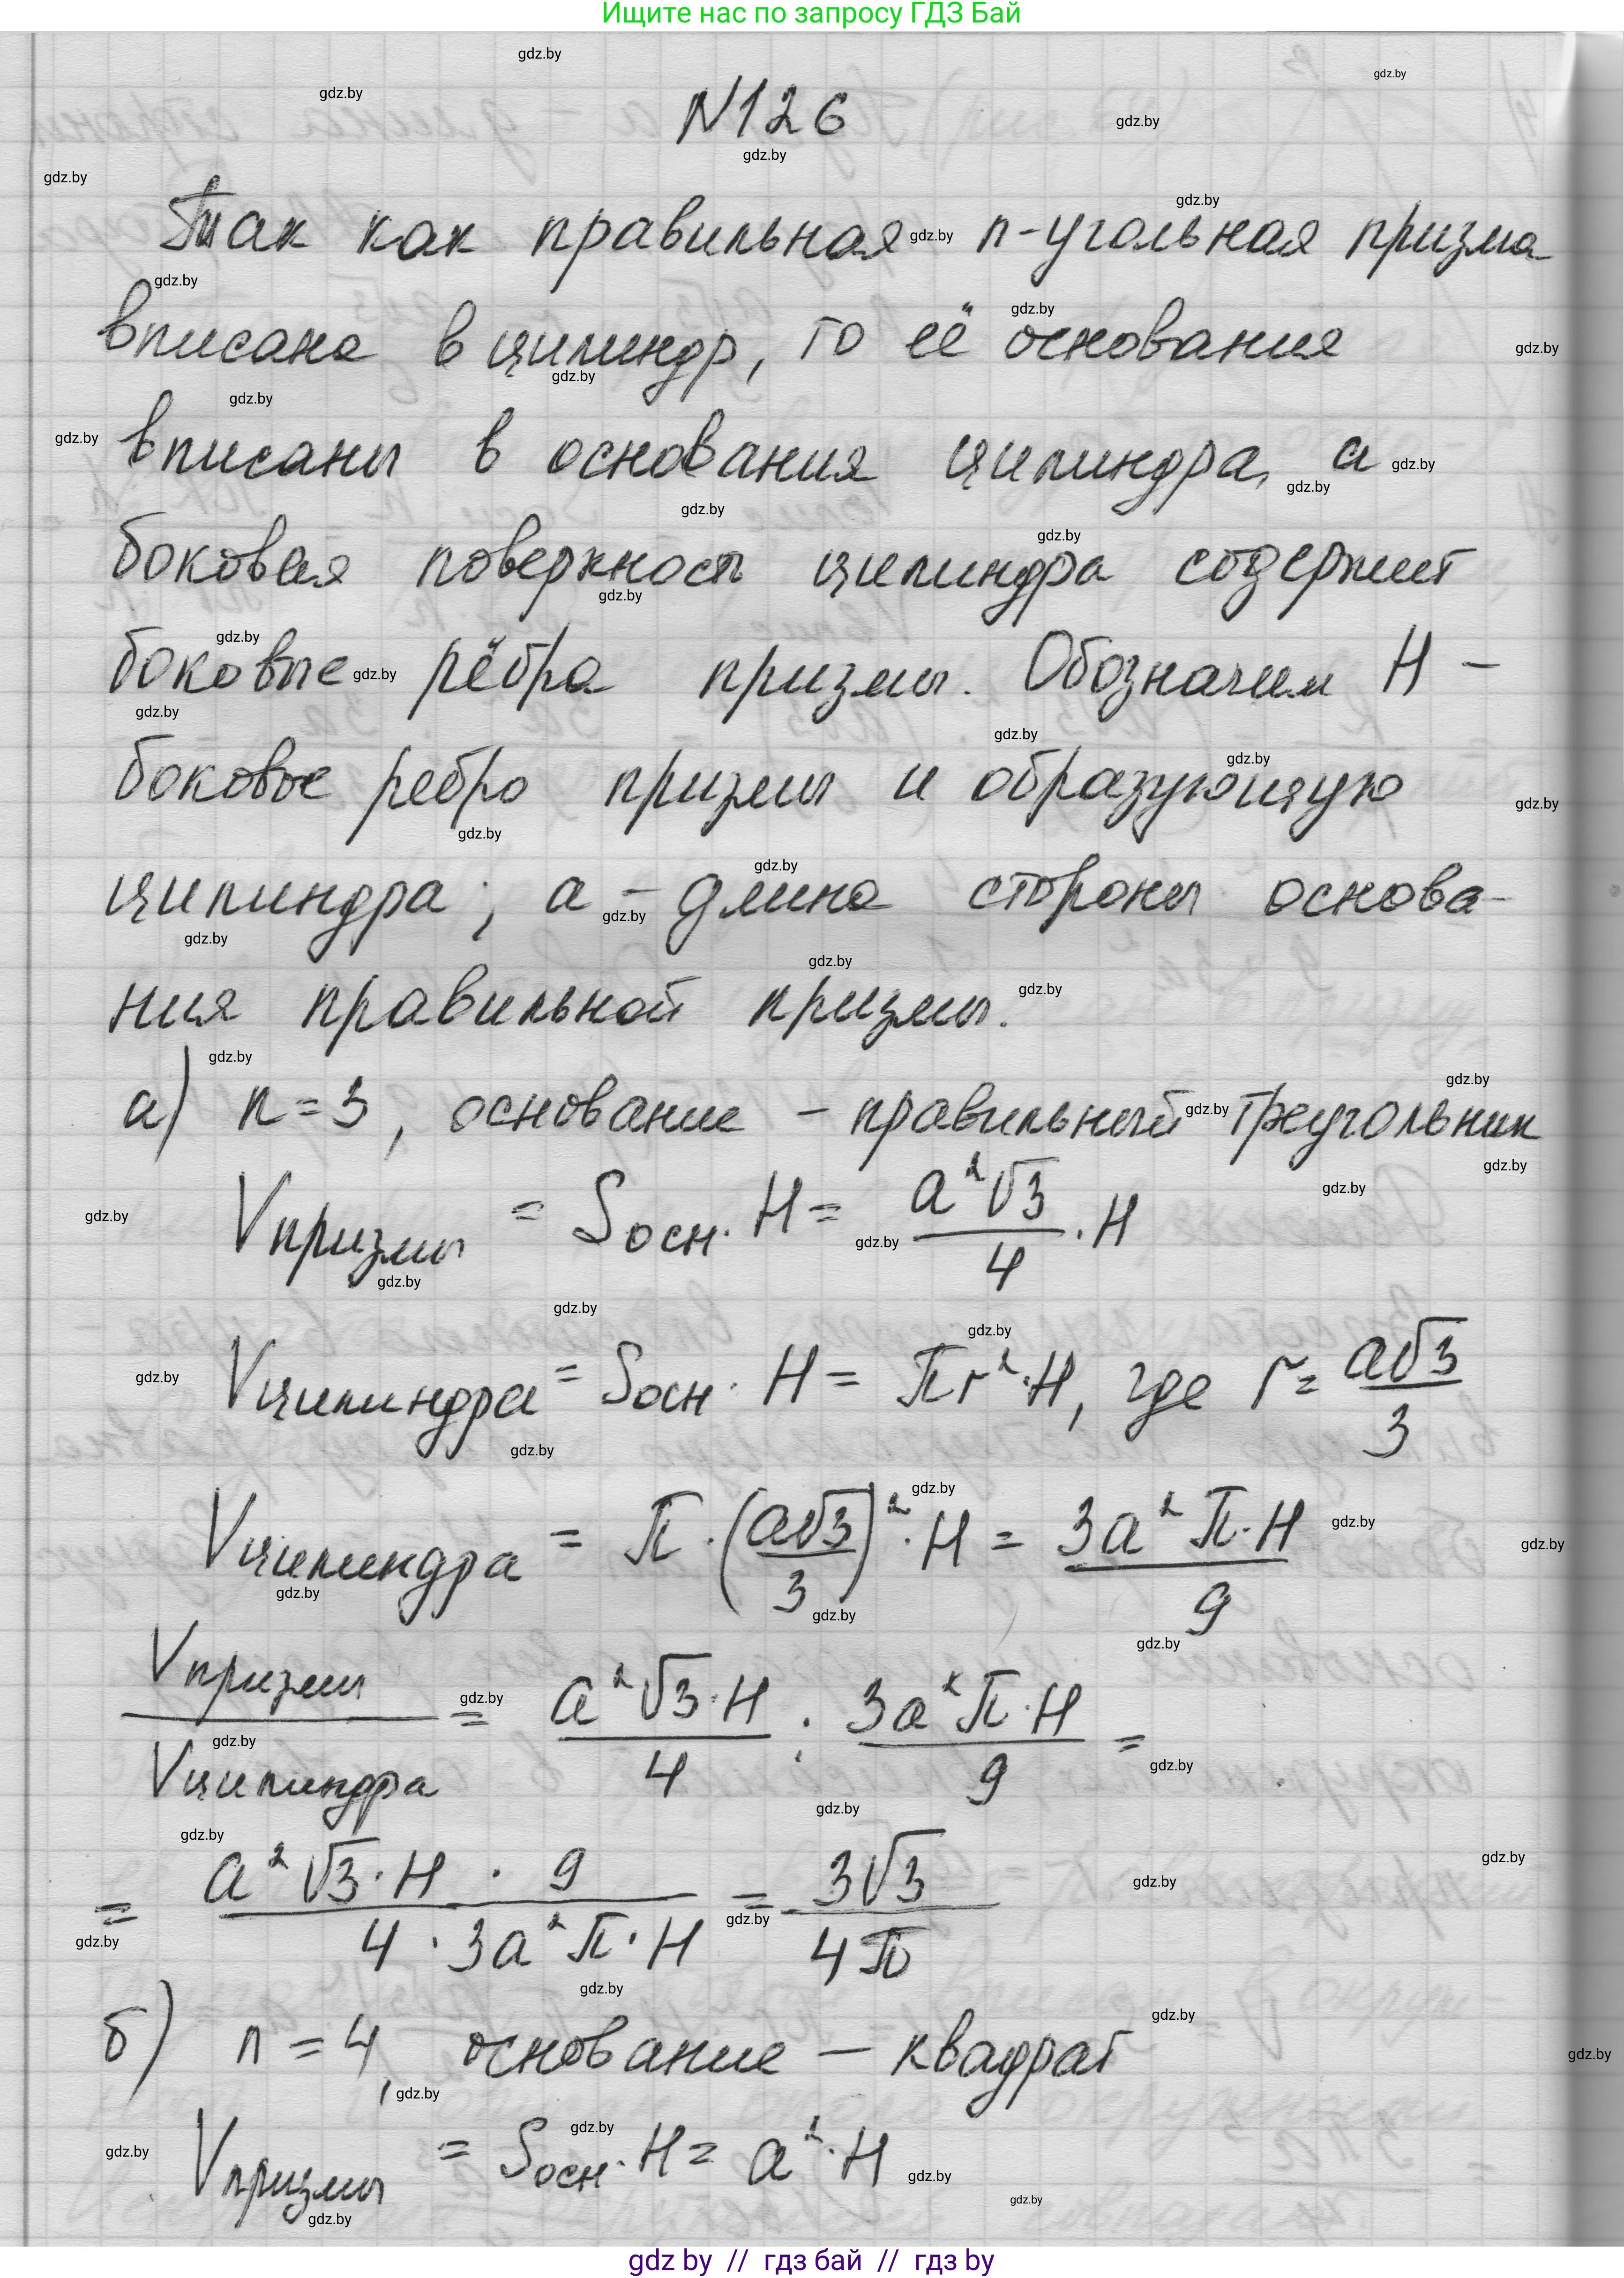 Ищите нас по запросу ГДЗ Бай
N126
Так как правильная n-угольная призма
вписана в цилиндр, то её основания
вписаны в основания цилиндра, а
боковая поверхность цилиндра содержит
боковые рёбра призмы. Обозначим H –
боковое ребро призмы и образующую
цилиндра; a – длина стороны основа-
ния правильной призмы.
а) n=3, основание – правильный треугольник
Vпризмы = Sосн · H = a²√3/4 · H
Vцилиндра = Sосн · H = πr²·H, где r = a√3/3
Vцилиндра = π · (a√3/3)² · H = 3a²π·H/9
Vпризмы/Vцилиндра = a²√3·H/4 : 3a²π·H/9 =
= a²√3·H · 9/4 · 3a²π·H = 3√3/4π
б) n = 4, основание – квадрат
Vпризмы = Sосн · H = a²·H
gdz by // гдз бай // гдз by